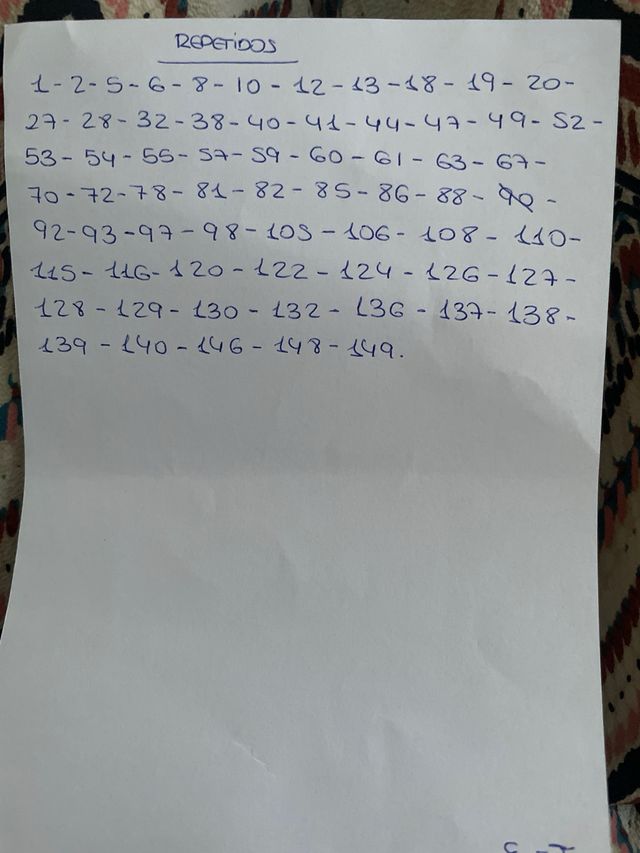 REPETIDOS
1 - 2 - 5 - 6 - 8 - 10 - 12 - 13 - 18 - 19 - 20 -
27 - 28 - 32 - 38 - 40 - 41 - 44 - 47 - 49 - 52 -
53 - 54 - 55 - 57 - 59 - 60 - 61 - 63 - 67 -
70 - 72 - 78 - 81 - 82 - 85 - 86 - 88 - 90 -
92 - 93 - 97 - 98 - 105 - 106 - 108 - 110 -
115 - 116 - 120 - 122 - 124 - 126 - 127 -
128 - 129 - 130 - 132 - 136 - 137 - 138 -
139 - 140 - 146 - 148 - 149.